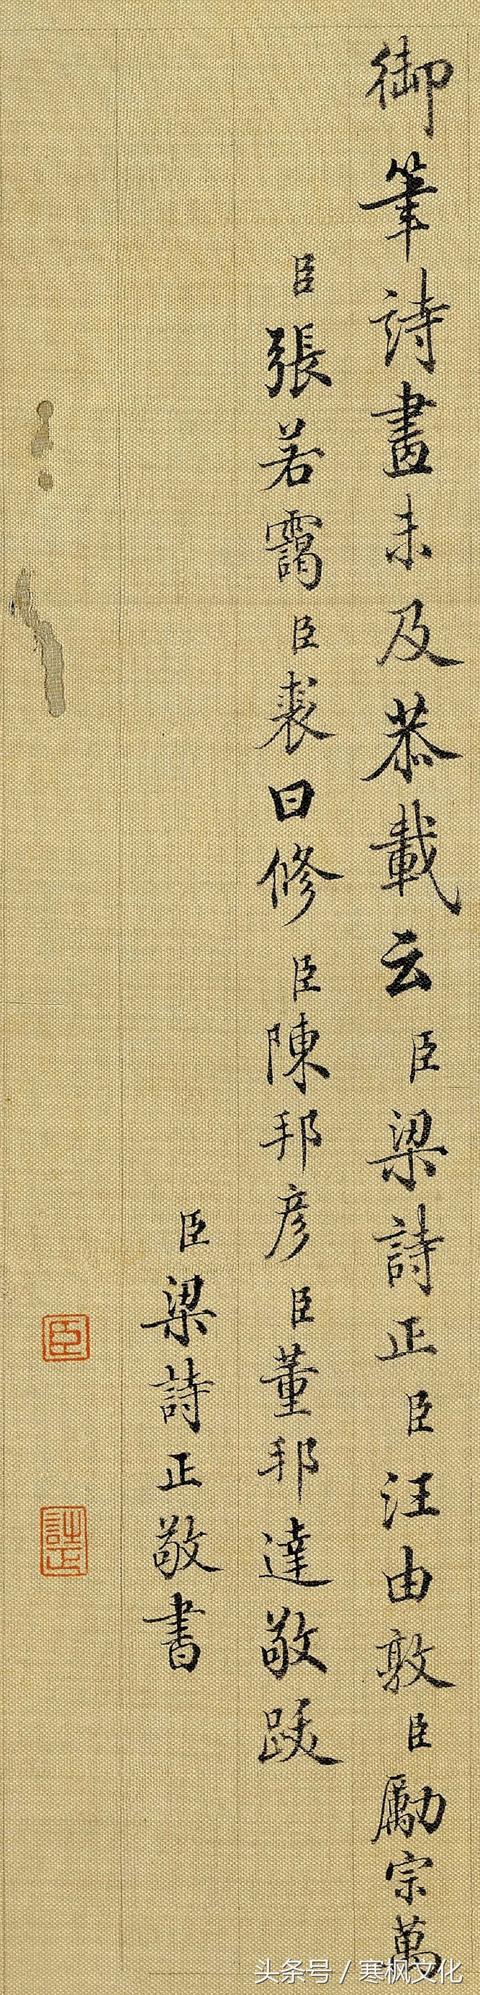 御筆詩畫未及恭載云臣梁詩正臣汪由敦臣勵宗萬
臣張若靄臣裘曰修臣陳邦彥臣董邦達敬跋
臣梁詩正敬書
臣
詩正
头条号 / 寒枫文化